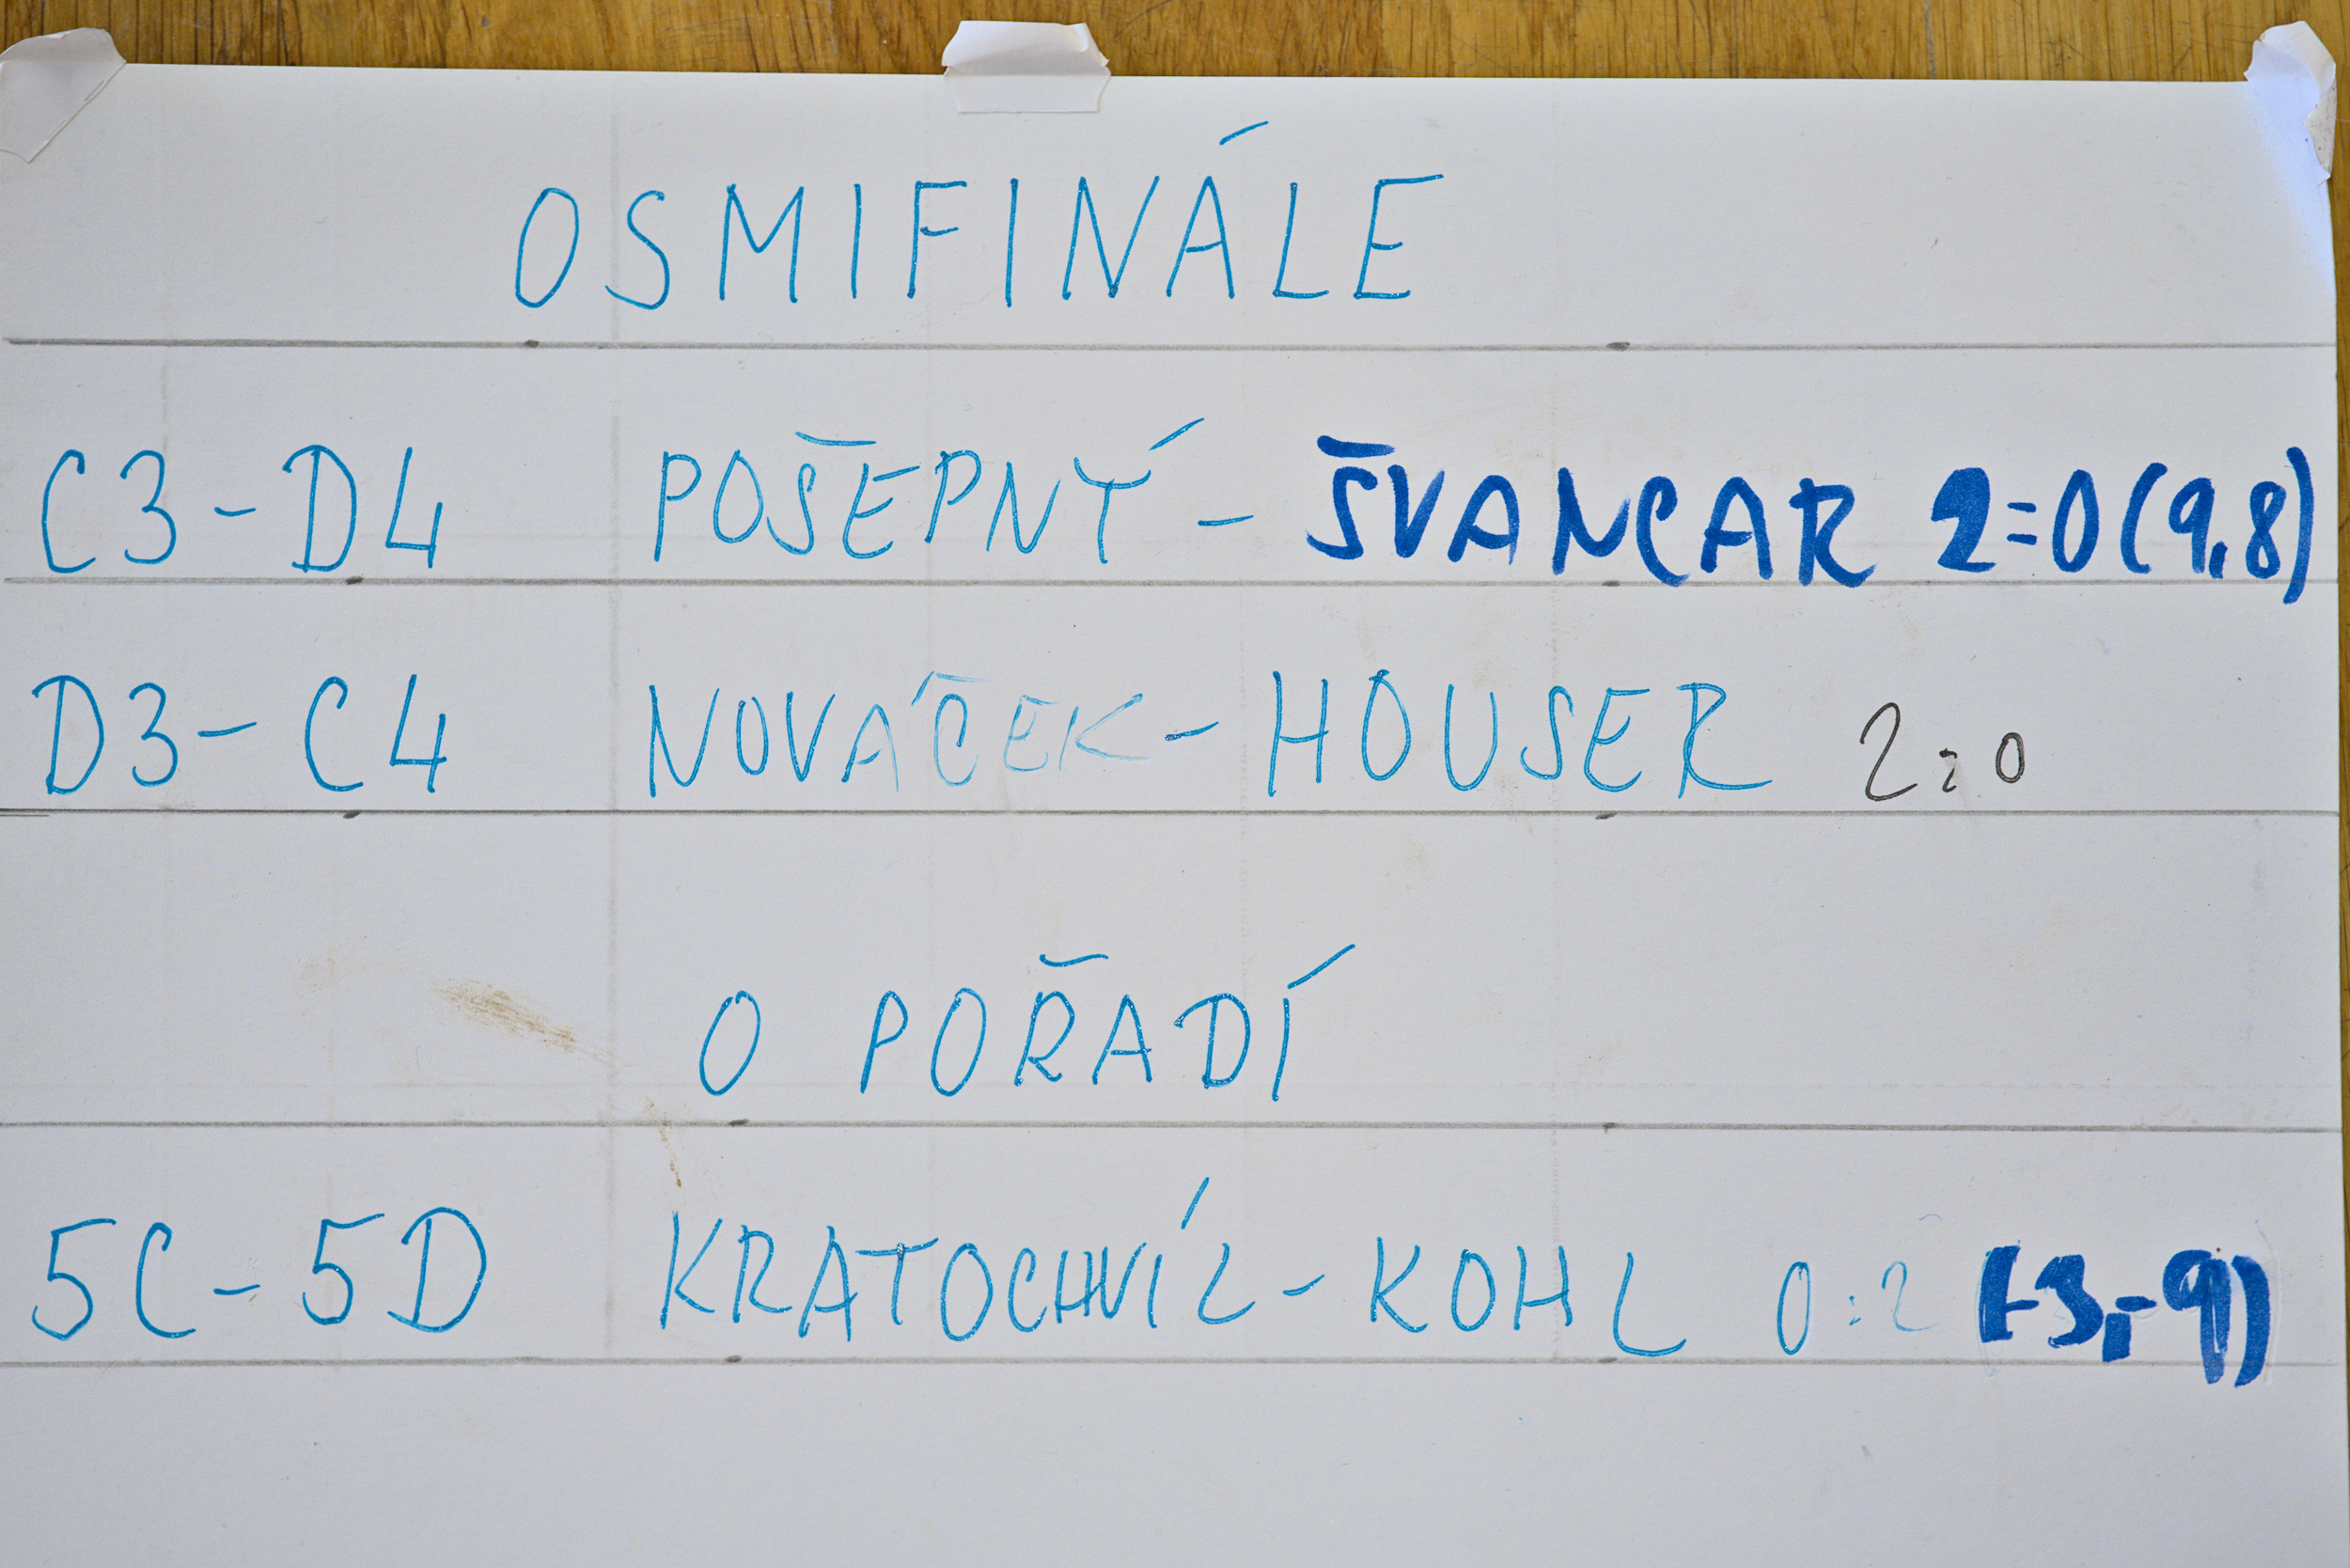 OSMIFINÁLE
C3-D4 POŠEPNÝ - ŠVANCAR 2=0 (9,8)
D3-C4 NOVÁČEK - HOUSER 2:0
O POŘADÍ
5C-5D KRATOCHVÍL - KOHL 0:2 (-3,-9)